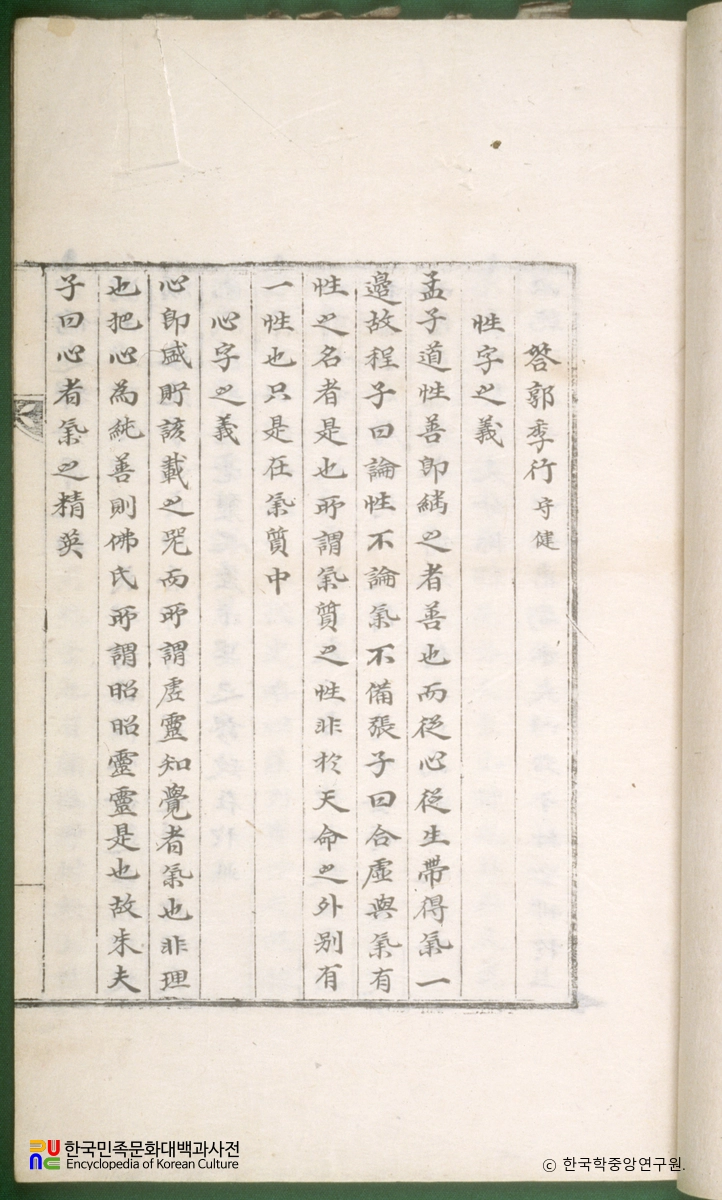 答郭季行守健
性字之義
孟子道性善卽繼之者善也而從心從生帶得氣一
邊故程子曰論性不論氣不備張子曰合虛與氣有
性之名者是也所謂氣質之性非於天命之外別有
一性也只是在氣質中
心字之義
心卽盛貯該載之咒而所謂虛靈知覺者氣也非理
也把心為純善則佛氏所謂昭昭靈靈是也故朱夫
子曰心者氣之精英
한국민족문화대백과사전
Encyclopedia of Korean Culture
ⓒ 한국학중앙연구원.